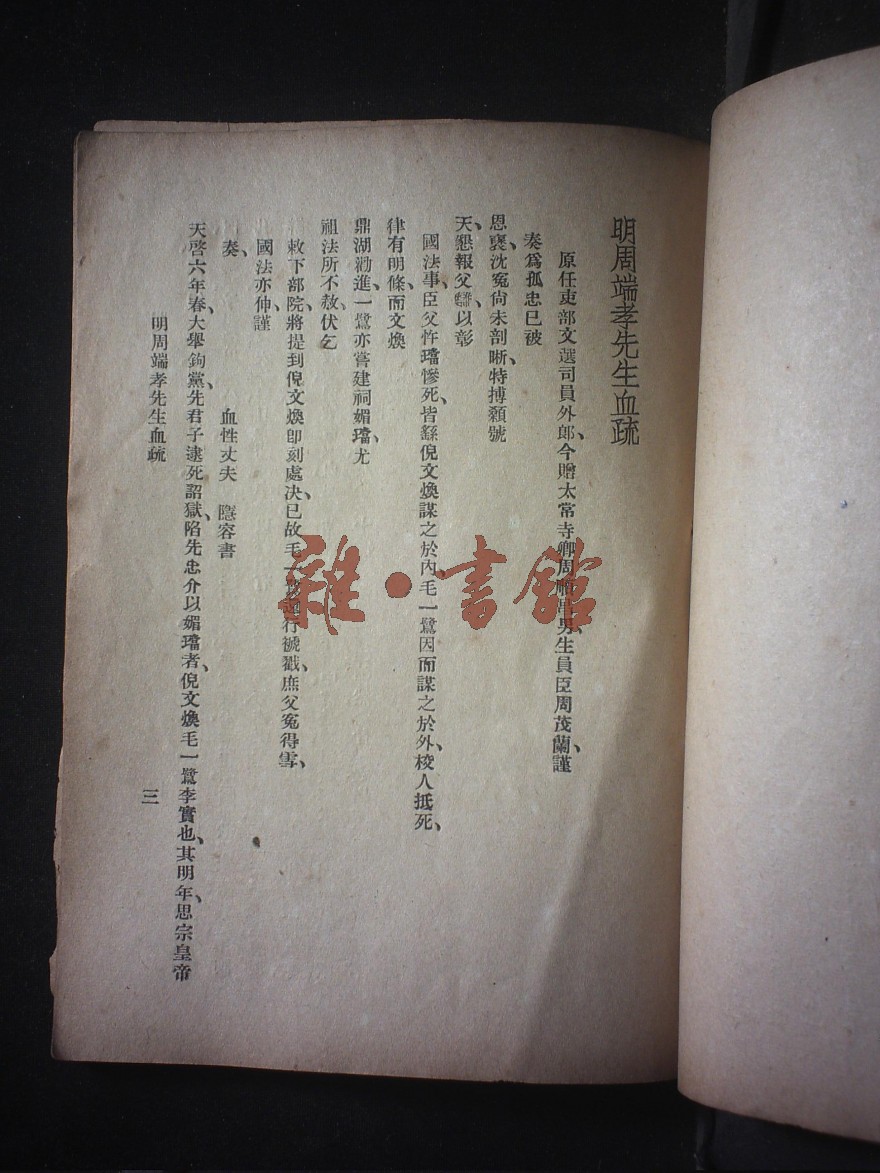 明周端孝先生血疏
原任吏部文選司員外郎、今贈太常寺卿周順昌男、生員臣周茂蘭、謹
奏爲孤忠已被
恩褒、沈寃尙未剖晰、特搏顙號
天、懇報父讎、以彰
國法事、臣父忤璫慘死、皆繇倪文煥謀之於內、毛一鷺因而謀之於外、校人抵死、
律有明條、而文煥
鼎湖勸進、一鷺亦嘗建祠媚璫、尤
祖法所不赦、伏乞
敕下部院、將提到倪文煥卽刻處決、已故毛一鷺 行褫戮、庶父寃得雪、
國法亦伸、謹
奏、 血性丈夫 隱容書
天啓六年春、大舉鉤黨、先君子逮死詔獄、陷先忠介以媚璫者、倪文煥毛一鷺李實也、其明年、思宗皇帝
明周端孝先生血疏
三
雜·書館